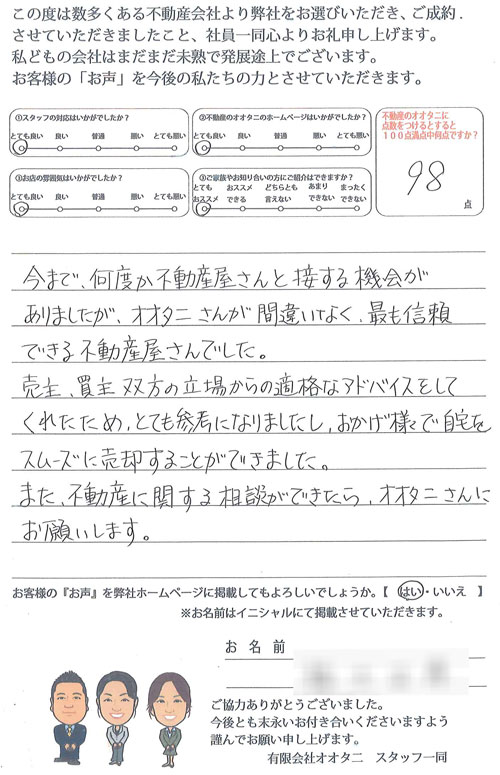 この度は数多くある不動産会社より弊社をお選びいただき、ご成約
させていただきましたこと、社員一同心よりお礼申し上げます。
私どもの会社はまだまだ未熟で発展途上でございます。
お客様の「お声」を今後の私たちの力とさせていただきます。
①スタッフの対応はいかがでしたか？
とても良い 良い 普通 悪い とても悪い
②不動産のオオタニのホームページはいかがでしたか？
とても良い 良い 普通 悪い とても悪い
③お店の雰囲気はいかがでしたか？
とても良い 良い 普通 悪い とても悪い
③ご家族やお知り合いの方にご紹介はできますか？
とても おススメ どちらとも あまり まったく
おススメ できる 言えない できない できない
不動産のオオタニに
点数をつけるとすると
１００点満点中何点ですか？
98
点
今まで、何度か不動産屋さんと接する機会が
ありましたが、オオタニさんが間違いなく、最も信頼
できる不動産屋さんでした。
売主、買主双方の立場からの適格なアドバイスをして
くれたため、とても参考になりましたし、おかげ様で自宅を
スムーズに売却することができました。
また、不動産に関する相談ができたら、オオタニさんに
お願いします。
お客様の『お声』を弊社ホームページに掲載してもよろしいでしょうか。【 はい・いいえ 】
※お名前はイニシャルにて掲載させていただきます。
お 名 前
ご協力ありがとうございました。
今後とも末永いお付き合いくださいますよう
謹んでお願い申し上げます。
有限会社オオタニ スタッフ一同